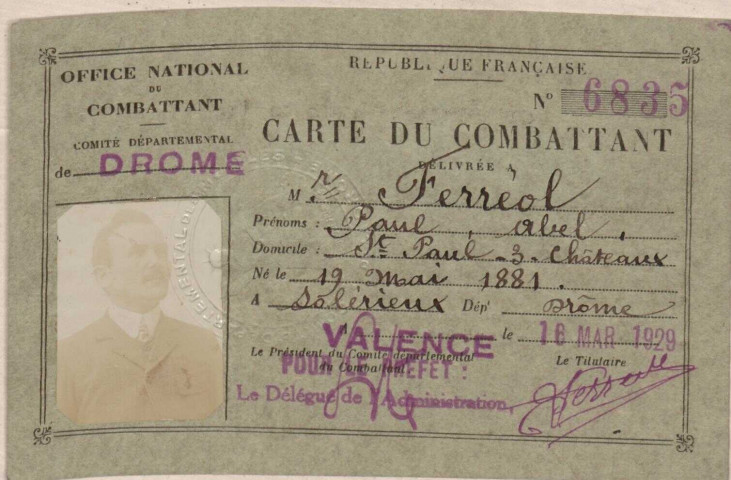 OFFICE NATIONAL
DU
COMBATTANT
COMITÉ DÉPARTEMENTAL
de DROME
RÉPUBLIQUE FRANÇAISE
N° 6835
CARTE DU COMBATTANT
DÉLIVRÉE A
M r Ferreol
Prénoms : Paul, abel,
Domicile : St Paul-3-Châteaux
Né le 19 mai 1881.
A Solérieux Dépt Drôme
A VALENCE le 16 MAR 1929
Le Président du Comité départemental
du Combattant
Le Titulaire
POUR LE PREFET :
Le Délégué de l'Administration,